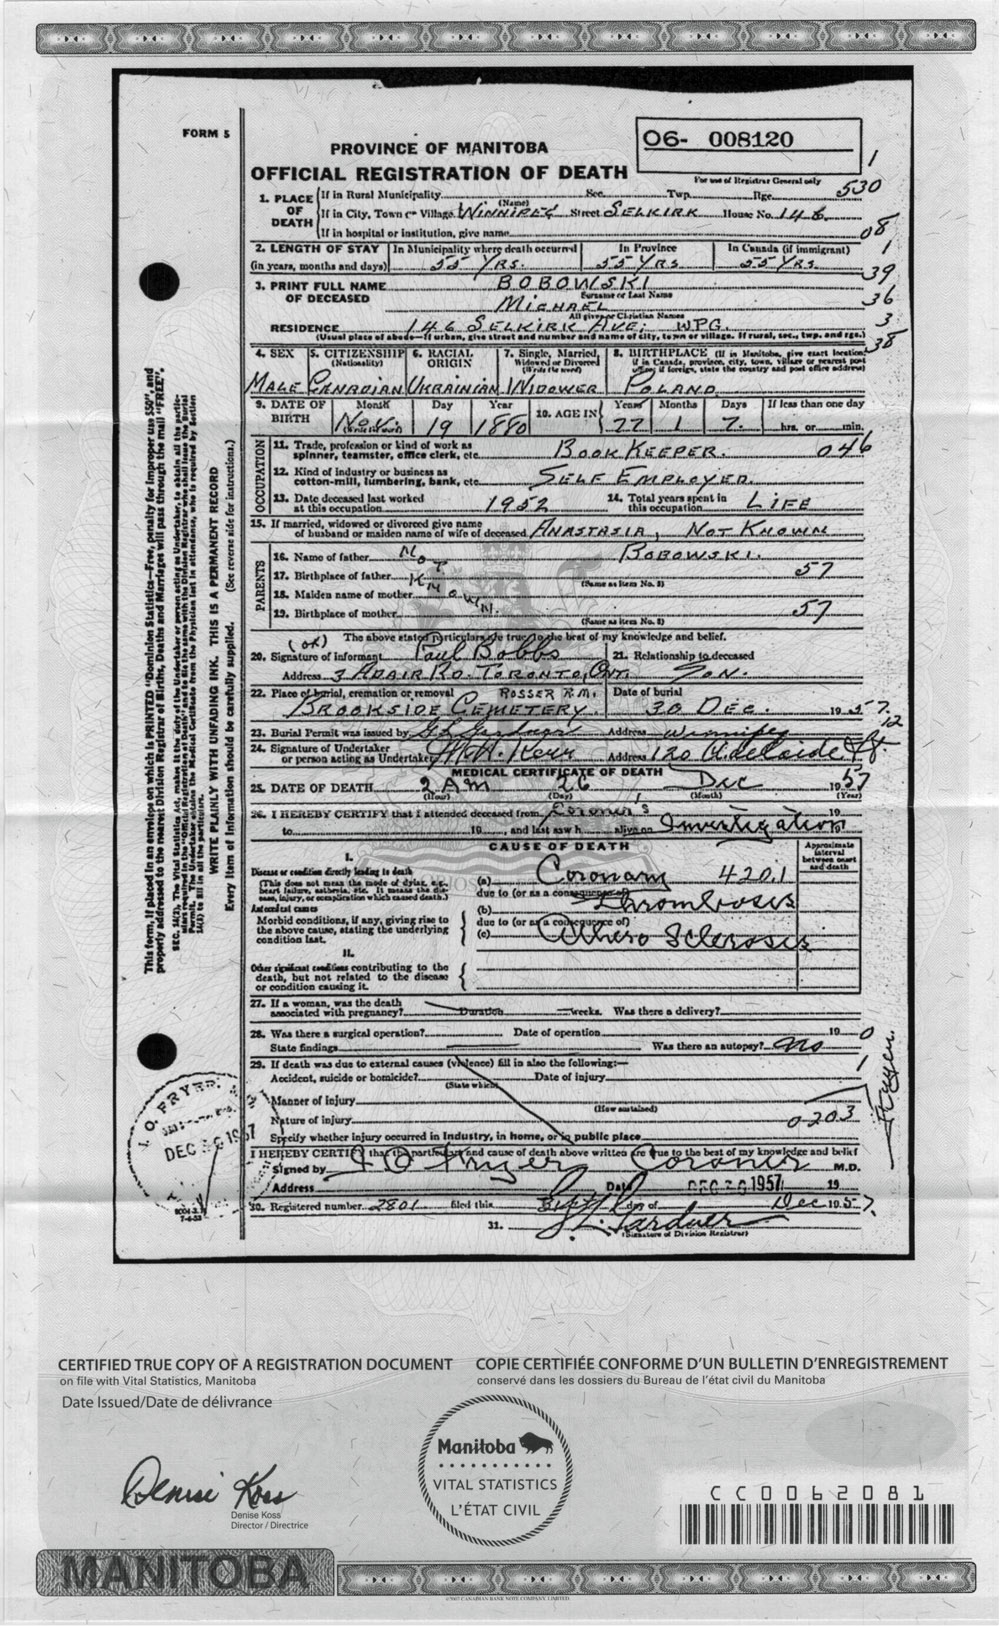 FORM 5
06- 008120
PROVINCE OF MANITOBA
OFFICIAL REGISTRATION OF DEATH
For use of Registrar General only
1
530
1. PLACE OF DEATH
If in Rural Municipality Sec. Twp. Rge.
(Name)
If in City, Town or Village. WINNIPEG Street SELKIRK House No. 146
If in hospital or institution, give name
08
2. LENGTH OF STAY (in years, months and days)
In Municipality where death occurred 55 YRS.
In Province 55 YRS
In Canada (if immigrant) 55 YRS.
1
39
3. PRINT FULL NAME OF DECEASED
BOBOWSKI
Surname or Last Name
MICHAEL
All given or Christian Names
36
RESIDENCE 146 SELKIRK AVE, WPG.
3
(Usual place of abode—If urban, give street and number and name of city, town or village. If rural, sec., twp. and rge.)
38
4. SEX MALE
5. CITIZENSHIP (Nationality) CANADIAN
6. RACIAL ORIGIN UKRAINIAN
7. Single, Married, Widowed or Divorced (Write the word) WIDOWER
8. BIRTHPLACE (If in Manitoba, give exact location; if in Canada, province, city, town, village or nearest post office; if foreign, state the country and post office address) POLAND
9. DATE OF BIRTH Month Nov. Day 19 Year 1880
10. AGE IN Years 77 Months 1 Days 7. If less than one day hrs. or min.
OCCUPATION
11. Trade, profession or kind of work as spinner, teamster, office clerk, etc. BOOK KEEPER. 046
12. Kind of industry or business as cotton-mill, lumbering, bank, etc. SELF EMPLOYED.
13. Date deceased last worked at this occupation 1952
14. Total years spent in this occupation LIFE
15. If married, widowed or divorced give name of husband or maiden name of wife of deceased ANASTASIA, NOT KNOWN
PARENTS
16. Name of father NOT BOBOWSKI.
17. Birthplace of father KNOWN. 57
(Same as item No. 8)
18. Maiden name of mother
19. Birthplace of mother 57
(Same as item No. 8)
(OK) The above stated particulars are true to the best of my knowledge and belief.
20. Signature of informant Paul Bobbs
21. Relationship to deceased SON.
Address 3 ADAIR RD. TORONTO, ONT.
22. Place of burial, cremation or removal ROSSER R.M.
BROOKSIDE CEMETERY.
Date of burial 30 DEC. 1957.
12
23. Burial Permit was issued by Address Winnipeg
24. Signature of Undertaker or person acting as Undertaker Kerr Address 120 Adelaide St.
MEDICAL CERTIFICATE OF DEATH
25. DATE OF DEATH 2 AM 26 Dec 1957
(Hour) (Day) (Month) (Year)
26. I HEREBY CERTIFY that I attended deceased from Coroner's 19
to 19 , and last saw h alive on Investigation
CAUSE OF DEATH
Approximate interval between onset and death
I.
Disease or condition directly leading to death
(This does not mean the mode of dying, e.g., heart failure, asthenia, etc. It means the disease, injury, or complication which caused death.)
Antecedent causes
Morbid conditions, if any, giving rise to the above cause, stating the underlying condition last.
(a) Coronary 420.1
due to (or as a consequence of) Thrombosis
(b)
due to (or as a consequence of)
(c) Athero Sclerosis
II.
Other significant conditions contributing to the death, but not related to the disease or condition causing it.
27. If a woman, was the death associated with pregnancy? Duration weeks. Was there a delivery?
28. Was there a surgical operation? Date of operation 19 0
State findings Was there an autopsy? No
29. If death was due to external causes (violence) fill in also the following:— 1
Accident, suicide or homicide? Date of injury
(State which)
Manner of injury
(How sustained)
Nature of injury 0203
Specify whether injury occurred in Industry, in home, or in public place
I HEREBY CERTIFY that the particulars and cause of death above written are true to the best of my knowledge and belief
Signed by I O Fryer Coroner M.D.
Address Date DEC 30 1957 19
30. Registered number 2801 filed this day of Dec 1957.
31. Gardner
(Signature of Division Registrar)
This form, if placed in an envelope on which is PRINTED "Dominion Statistics—Free, penalty for improper use $50", and properly addressed to the nearest Division Registrar of Births, Deaths and Marriages will pass through the mail "FREE".
WRITE PLAINLY WITH UNFADING INK. THIS IS A PERMANENT RECORD
Every item of Information should be carefully supplied. (See reverse side for instructions.)
I. O. FRYER,
DEC 30 1957
CERTIFIED TRUE COPY OF A REGISTRATION DOCUMENT
on file with Vital Statistics, Manitoba
COPIE CERTIFIÉE CONFORME D'UN BULLETIN D'ENREGISTREMENT
conservé dans les dossiers du Bureau de l'état civil du Manitoba
Date Issued/Date de délivrance
Denise Koss
Denise Koss
Director / Directrice
Manitoba
VITAL STATISTICS
L'ÉTAT CIVIL
CC0062081
MANITOBA
©2007 CANADIAN BANK NOTE COMPANY, LIMITED.